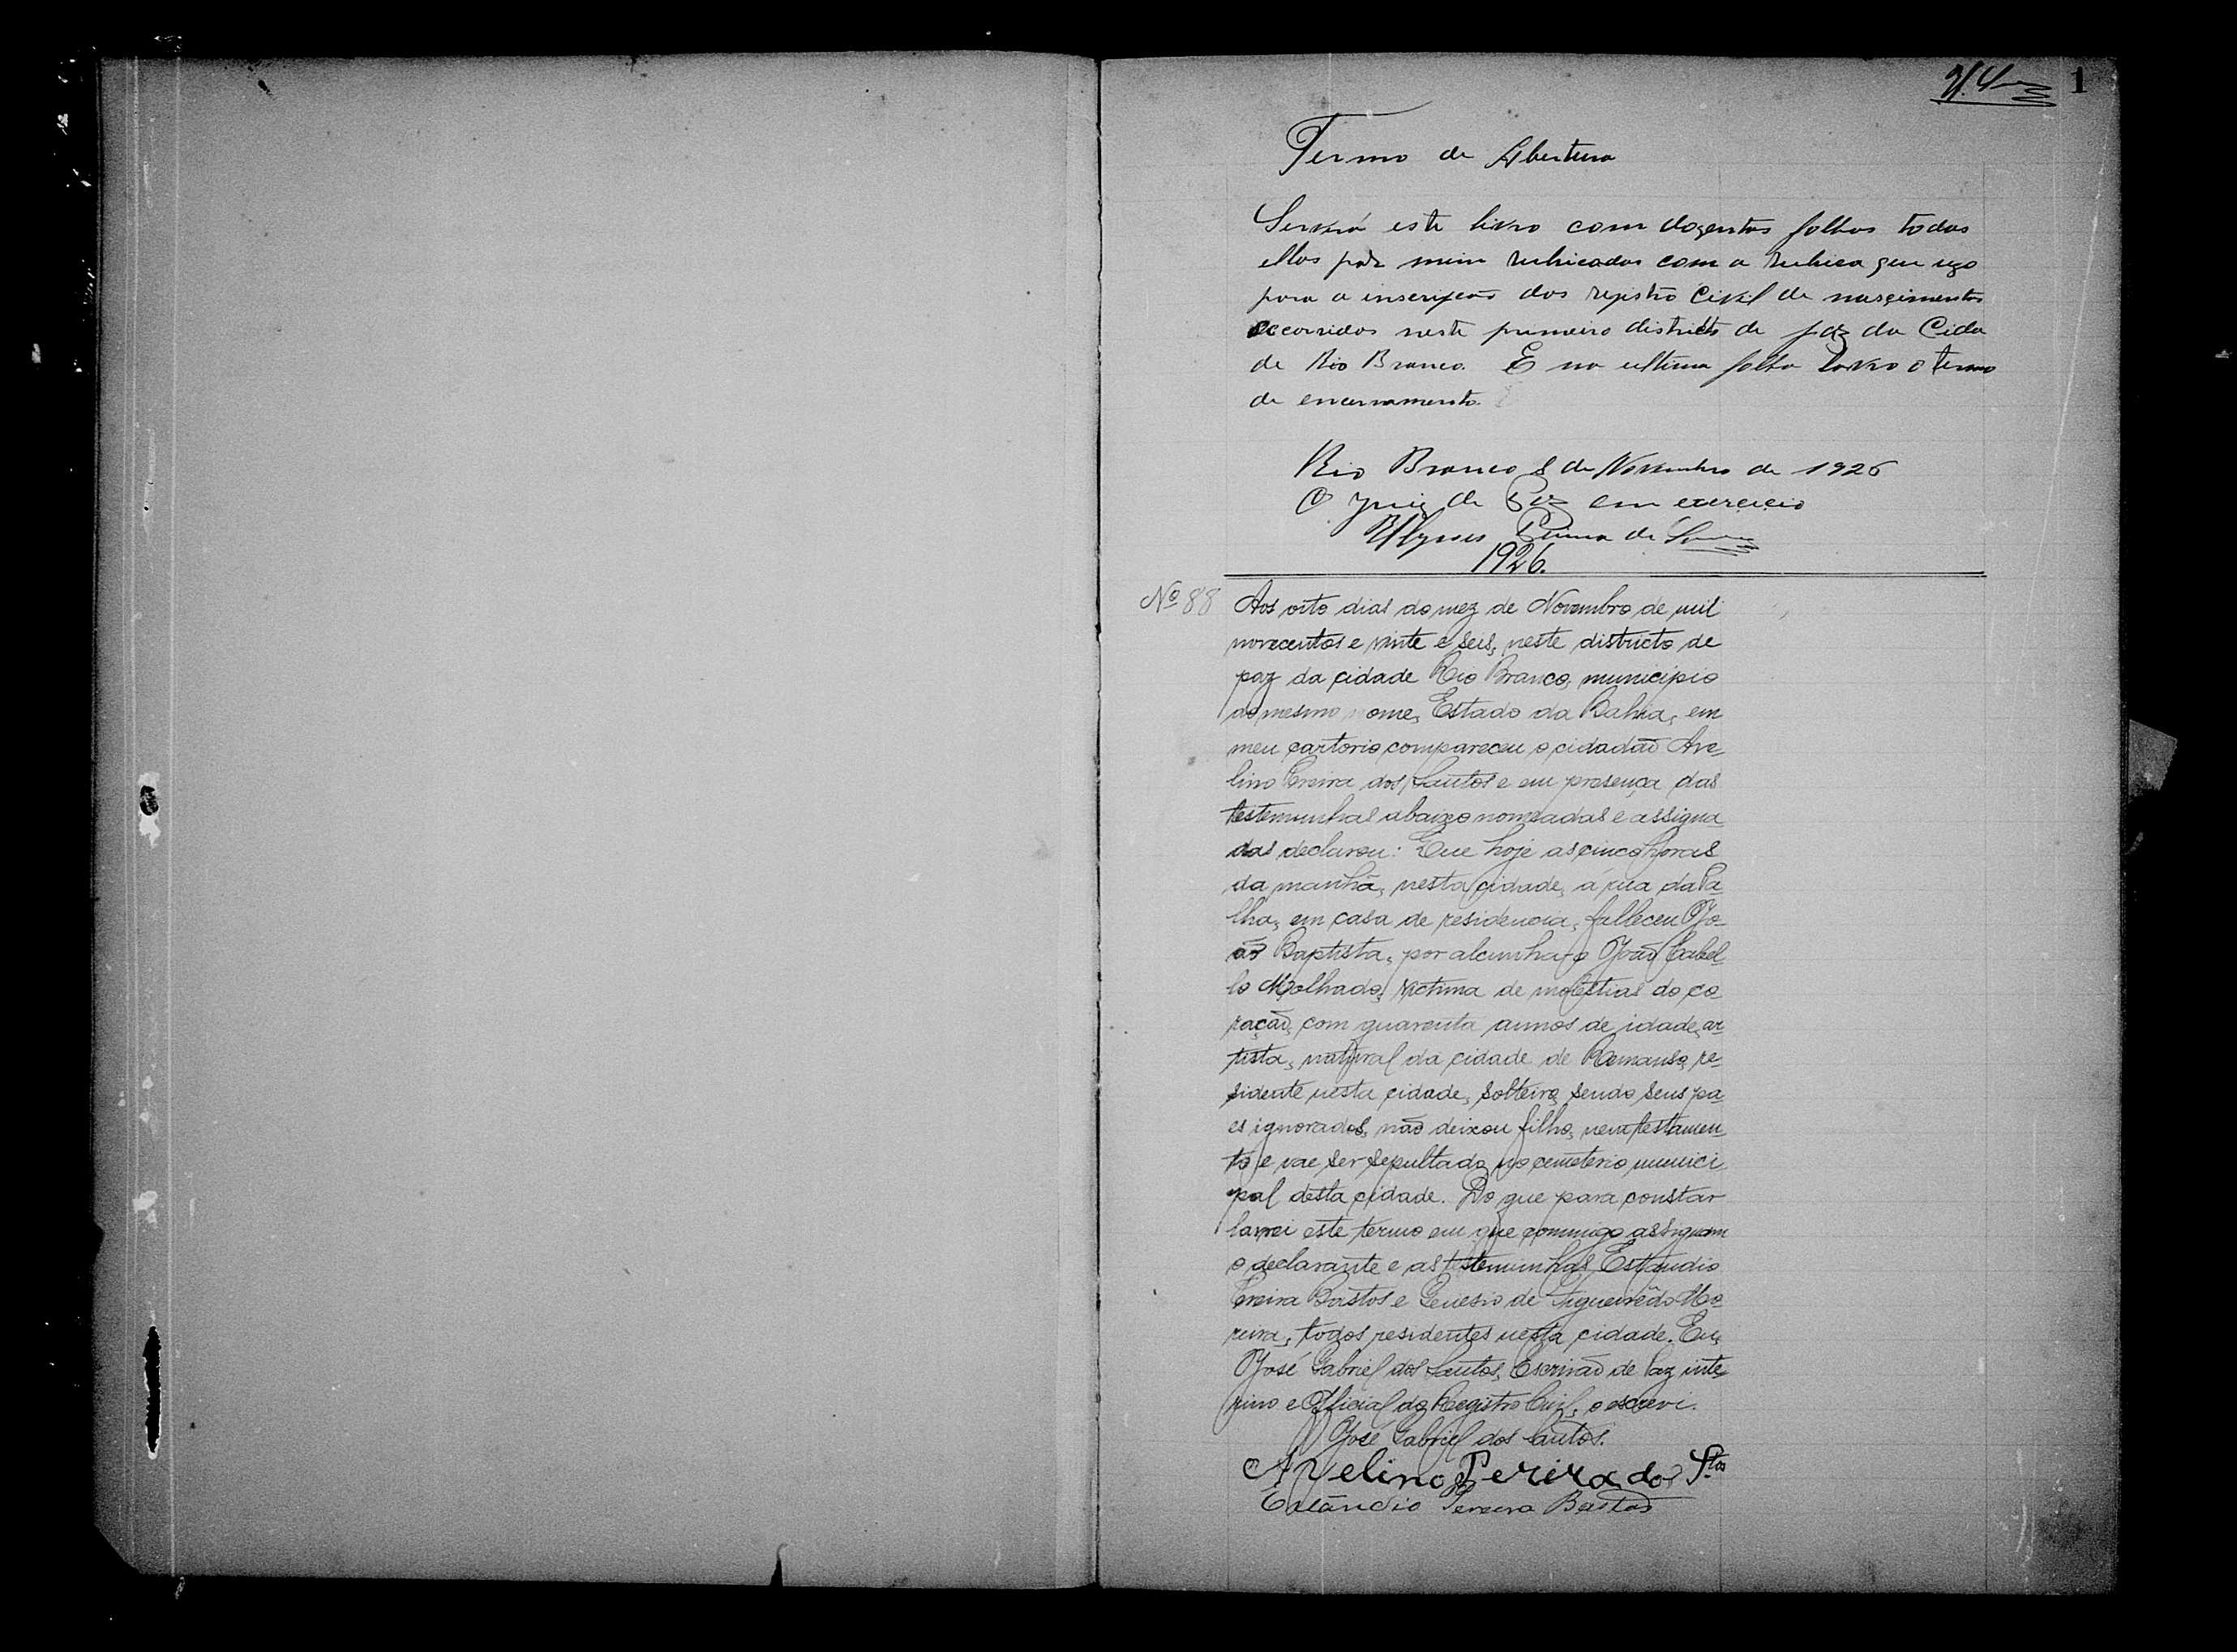 1
Termo de Abertura
Servirá este livro com dozentas folhas todas
ellas por mim rubricadas com a rubrica que uzo
para a inscripção dos registro Civil de nascimentos
occorridos neste primeiro districto de paz da Cida
de Rio Branco. E na ultima folha lavro o termo
de encerramento.
Rio Branco 8 de Novembro de 1926
O Juiz de Paz em exercicio
Ulysses de
1926.
Nº 88
Aos oito dias do mez de Novembro de mil
novecentos e vinte e seis, neste districto de
paz da cidade Rio Branco, municipio
do mesmo nome, Estado da Bahia, em
meu cartorio compareceu o cidadão Ave-
lino Pereira dos Santos e em presença das
testemunhas abaixo nomeadas e assigna-
das declarou: Que hoje as cinco horas
da manhã, nesta cidade, á rua da Pa-
lha, em casa de residencia, falleceu Jo-
ão Baptista, por alcunha o João Cabel-
lo Molhado, victima de molestias do co-
ração, com quarenta annos de idade, ar-
tista, natural da cidade de Remanso, re-
sidente nesta cidade, solteiro, sendo seus pa-
es ignorados, não deixou filho, nem testamen-
to e vae ser sepultado no cemeterio munici-
pal desta cidade. Do que para constar
lavrei este termo em que commigo assignam
o declarante e as testemunhas
Pereira Bastos e Genesio de Figueirêdo Mo-
reira, todos residentes nesta cidade. Eu,
José Gabriel dos Santos, Escrivão de Paz inte-
rino e Official do Registro Civil, o escrevi.
José Gabriel dos Santos.
Avelino Pereira dos Stos
Pereira Bastos